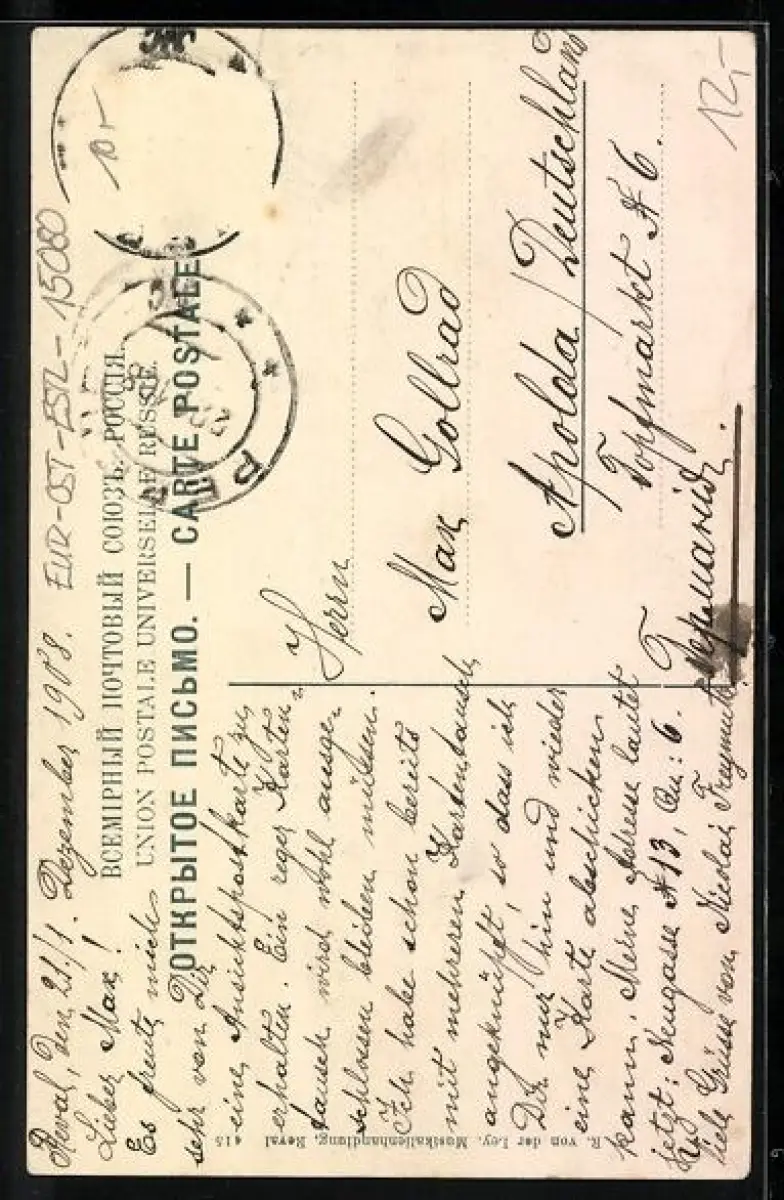 12,-
10,-
EUR-OST-ESTL-15080
Reval, den 21/1. Dezember 1908.
ВСЕМІРНЫЙ ПОЧТОВЫЙ СОЮЗЪ. РОССІЯ.
UNION POSTALE UNIVERSELLE. RUSSIE.
ОТКРЫТОЕ ПИСЬМО. — CARTE POSTALE
Lieber Max!
Es freute mich
sehr von Dir
eine Ansichtspostkarte zu
erhalten. Ein reger Karten-
tausch wird wohl ausge-
schlossen bleiben müssen.
Ich habe schon bereits
mit mehreren Kartentausch
angeknüpft, so dass ich
Dir nur hin und wieder
eine Karte abschicken
kann. Meine Adresse lautet
jetzt: Neugasse № 13, Qu: 6.
Viele Grüsse von Nicolai Freymuth.
Herrn
Max Gollrad
Apolda / Deutschland
Topfmarkt № 6.
Германія.
R. von der Ley, Musikalienhandlung, Reval 415